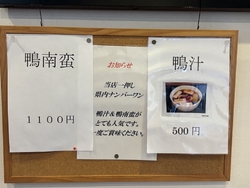 鴨南蛮
1100円
お知らせ
当店一押し
県内ナンバーワン
鴨汁&鴨南蛮が
とても人気です。
一度ご賞味ください。
鴨汁
500円